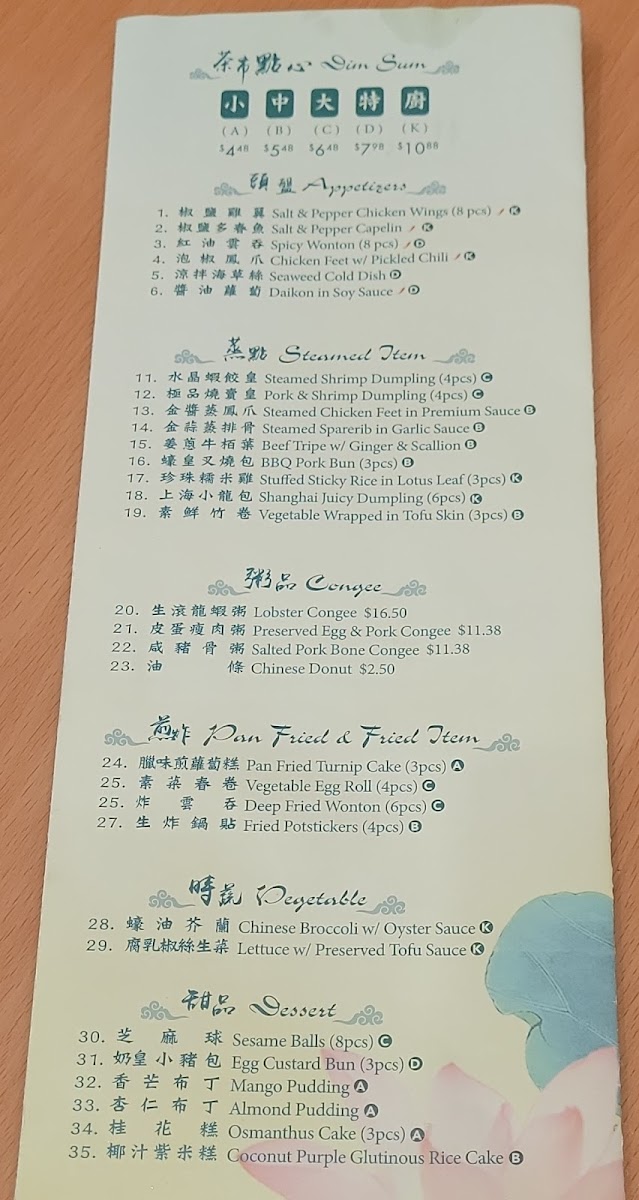 茶市點心 Dim Sum
小 中 大 特 廚
(A) (B) (C) (D) (K)
$4.48 $5.48 $6.48 $7.98 $10.88
頭盤 Appetizers
1. 椒鹽雞翼 Salt & Pepper Chicken Wings (8 pcs) K
2. 椒鹽多春魚 Salt & Pepper Capelin K
3. 紅油雲吞 Spicy Wonton (8 pcs) D
4. 泡椒鳳爪 Chicken Feet w/ Pickled Chili K
5. 涼拌海草絲 Seaweed Cold Dish D
6. 醬油蘿蔔 Daikon in Soy Sauce D
蒸點 Steamed Item
11. 水晶蝦餃皇 Steamed Shrimp Dumpling (4pcs) C
12. 極品燒賣皇 Pork & Shrimp Dumpling (4pcs) C
13. 金醬蒸鳳爪 Steamed Chicken Feet in Premium Sauce B
14. 金蒜蒸排骨 Steamed Sparerib in Garlic Sauce B
15. 姜蔥牛栢葉 Beef Tripe w/ Ginger & Scallion B
16. 蠔皇叉燒包 BBQ Pork Bun (3pcs) B
17. 珍珠糯米雞 Stuffed Sticky Rice in Lotus Leaf (3pcs) K
18. 上海小龍包 Shanghai Juicy Dumpling (6pcs) K
19. 素鮮竹卷 Vegetable Wrapped in Tofu Skin (3pcs) B
粥品 Congee
20. 生滾龍蝦粥 Lobster Congee $16.50
21. 皮蛋瘦肉粥 Preserved Egg & Pork Congee $11.38
22. 咸豬骨粥 Salted Pork Bone Congee $11.38
23. 油條 Chinese Donut $2.50
煎炸 Pan Fried & Fried Item
24. 臘味煎蘿蔔糕 Pan Fried Turnip Cake (3pcs) A
25. 素菜春卷 Vegetable Egg Roll (4pcs) C
25. 炸雲吞 Deep Fried Wonton (6pcs) C
27. 生炸鍋貼 Fried Potstickers (4pcs) B
時蔬 Vegetable
28. 蠔油芥蘭 Chinese Broccoli w/ Oyster Sauce K
29. 腐乳椒絲生菜 Lettuce w/ Preserved Tofu Sauce K
甜品 Dessert
30. 芝麻球 Sesame Balls (8pcs) C
31. 奶皇小豬包 Egg Custard Bun (3pcs) D
32. 香芒布丁 Mango Pudding A
33. 杏仁布丁 Almond Pudding A
34. 桂花糕 Osmanthus Cake (3pcs) A
35. 椰汁紫米糕 Coconut Purple Glutinous Rice Cake B